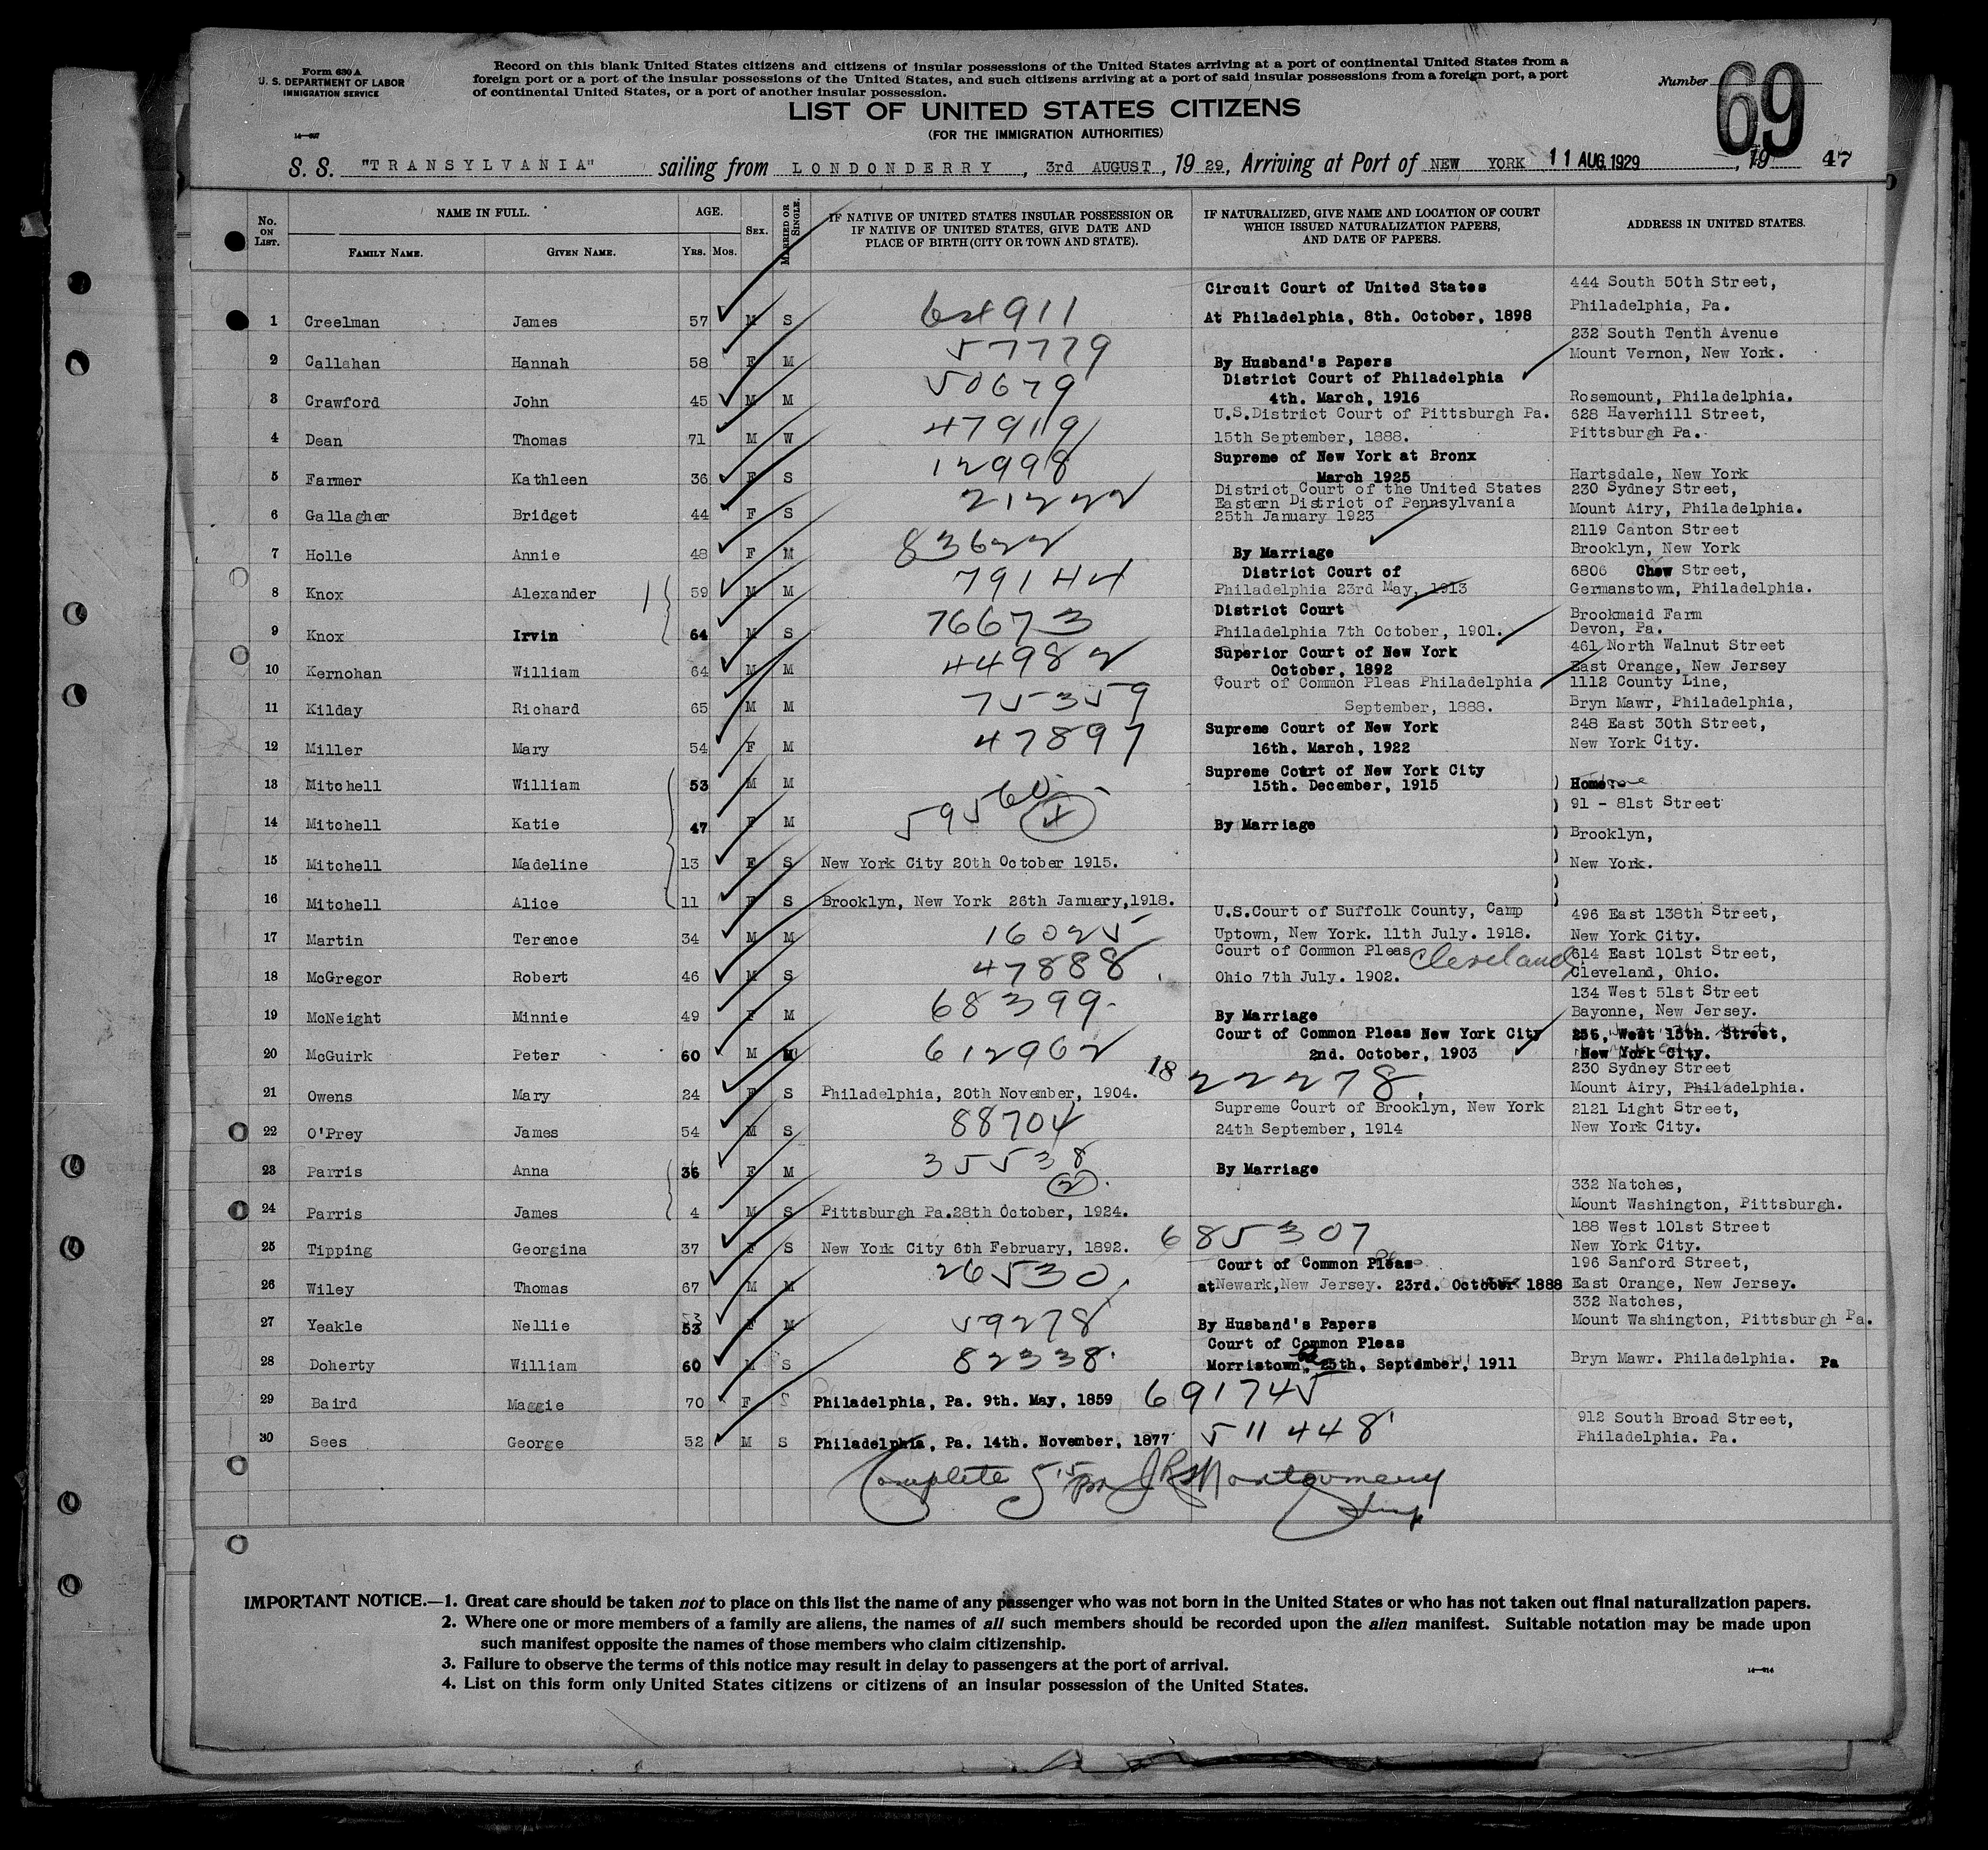 Form 630 A
U. S. DEPARTMENT OF LABOR
IMMIGRATION SERVICE
Record on this blank United States citizens and citizens of insular possessions of the United States arriving at a port of continental United States from a
foreign port or a port of the insular possessions of the United States, and such citizens arriving at a port of said insular possessions from a foreign port, a port
of continental United States, or a port of another insular possession.
Number 69
LIST OF UNITED STATES CITIZENS
(FOR THE IMMIGRATION AUTHORITIES)
S. S. "TRANSYLVANIA" sailing from LONDONDERRY, 3rd AUGUST, 19 29, Arriving at Port of NEW YORK 11 AUG 1929, 19 47
No. ON LIST. NAME IN FULL. FAMILY NAME. GIVEN NAME. AGE. YRS. MOS. SEX. MARRIED OR SINGLE. IF NATIVE OF UNITED STATES INSULAR POSSESSION OR IF NATIVE OF UNITED STATES, GIVE DATE AND PLACE OF BIRTH (CITY OR TOWN AND STATE). IF NATURALIZED, GIVE NAME AND LOCATION OF COURT WHICH ISSUED NATURALIZATION PAPERS, AND DATE OF PAPERS. ADDRESS IN UNITED STATES.
1 Creelman James 57 M S 64911 Circuit Court of United States At Philadelphia, 8th. October, 1898 444 South 50th Street, Philadelphia, Pa.
2 Callahan Hannah 58 F M 57779 By Husband's Papers 232 South Tenth Avenue Mount Vernon, New York.
3 Crawford John 45 M M 50679 District Court of Philadelphia 4th. March, 1916 Rosemount, Philadelphia.
4 Dean Thomas 71 M W 47919 U.S.District Court of Pittsburgh Pa. 15th September, 1888. 628 Haverhill Street, Pittsburgh Pa.
5 Farmer Kathleen 36 F S 12998 Supreme of New York at Bronx March 1925 Hartsdale, New York
6 Gallagher Bridget 44 F S 21222 District Court of the United States Eastern District of Pennsylvania 25th January 1923 230 Sydney Street, Mount Airy, Philadelphia.
7 Holle Annie 48 F M 83622 By Marriage 2119 Canton Street Brooklyn, New York
8 Knox Alexander 59 M M 79144 District Court of Philadelphia 23rd May, 1913 6806 Chew Street, Germanstown, Philadelphia.
9 Knox Irvin 64 M S 76673 District Court Philadelphia 7th October, 1901. Brookmaid Farm Devon, Pa.
10 Kernohan William 64 M M 44982 Superior Court of New York October, 1892 461 North Walnut Street East Orange, New Jersey
11 Kilday Richard 65 M M 75359 Court of Common Pleas Philadelphia September, 1888. 1112 County Line, Bryn Mawr, Philadelphia,
12 Miller Mary 54 F M 47897 Supreme Court of New York 16th. March, 1922 248 East 30th Street, New York City.
13 Mitchell William 53 M M Supreme Court of New York City 15th. December, 1915 Home
14 Mitchell Katie 47 F M 59560 4 By Marriage 91 - 81st Street Brooklyn,
15 Mitchell Madeline 13 F S New York City 20th October 1915. New York.
16 Mitchell Alice 11 F S Brooklyn, New York 26th January,1918.
17 Martin Terence 34 M M 16025 U.S.Court of Suffolk County, Camp Uptown, New York. 11th July. 1918. 496 East 138th Street, New York City.
18 McGregor Robert 46 M S 47888 Court of Common Pleas Cleveland Ohio 7th July. 1902. 614 East 101st Street, Cleveland, Ohio.
19 McNeight Minnie 49 F M 68399 By Marriage 134 West 51st Street Bayonne, New Jersey.
20 McGuirk Peter 60 M M 612962 Court of Common Pleas New York City 2nd. October, 1903 West 15th. Street, New York City.
21 Owens Mary 24 F S Philadelphia, 20th November, 1904. 18 22278 230 Sydney Street Mount Airy, Philadelphia.
22 O'Prey James 54 M S 88704 Supreme Court of Brooklyn, New York 24th September, 1914 2121 Light Street, New York City.
23 Parris Anna 36 F M 35538 2 By Marriage
24 Parris James 4 M S Pittsburgh Pa.28th October, 1924. 332 Natches, Mount Washington, Pittsburgh.
25 Tipping Georgina 37 F S New York City 6th February, 1892. 685307 188 West 101st Street New York City.
26 Wiley Thomas 67 M M 26530 Court of Common Pleas at Newark, New Jersey. 23rd. October 1888 196 Sanford Street, East Orange, New Jersey.
27 Yeakle Nellie 53 F M 59278 By Husband's Papers 332 Natches, Mount Washington, Pittsburgh Pa.
28 Doherty William 60 M S 82338 Court of Common Pleas Morristown, 25th, September, 1911 Bryn Mawr. Philadelphia. Pa
29 Baird Maggie 70 F S Philadelphia, Pa. 9th. May, 1859 691745
30 Sees George 52 M S Philadelphia, Pa. 14th. November, 1877 511448 912 South Broad Street, Philadelphia. Pa.
Complete 5 15 pm J R Montgomery
Insp
IMPORTANT NOTICE.—1. Great care should be taken not to place on this list the name of any passenger who was not born in the United States or who has not taken out final naturalization papers.
2. Where one or more members of a family are aliens, the names of all such members should be recorded upon the alien manifest. Suitable notation may be made upon
such manifest opposite the names of those members who claim citizenship.
3. Failure to observe the terms of this notice may result in delay to passengers at the port of arrival.
4. List on this form only United States citizens or citizens of an insular possession of the United States.